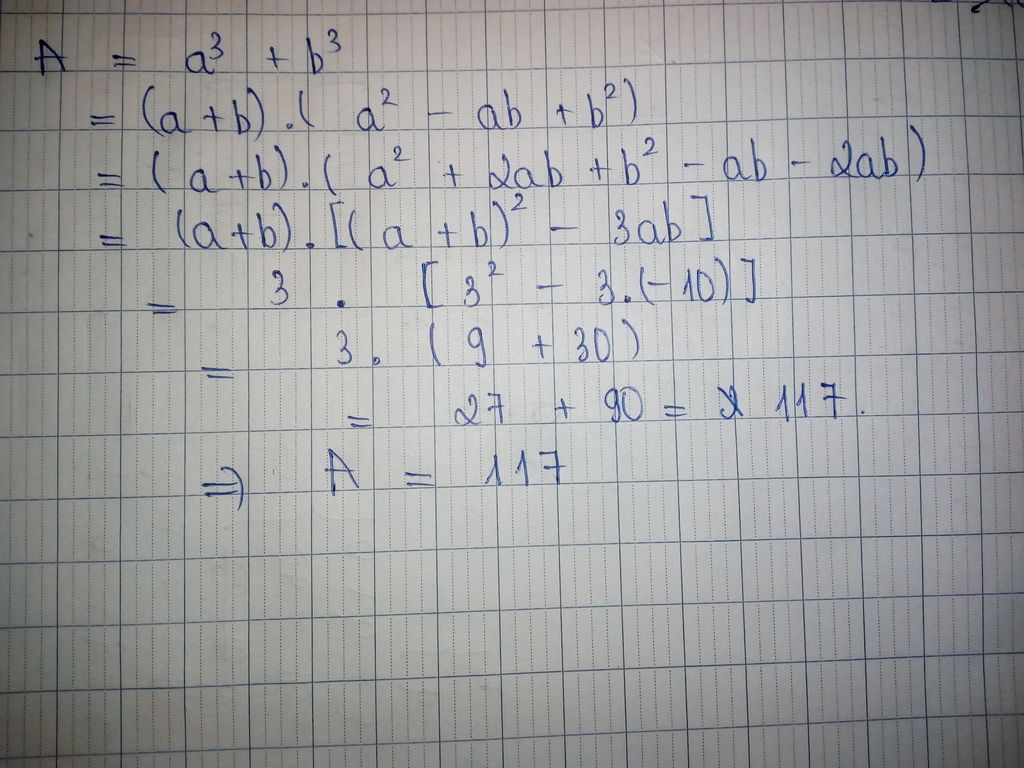 A = a³ + b³
= (a+b).( a² - ab + b²)
= ( a+b).( a² + 2ab + b² - ab - 2ab)
= (a+b).[( a + b)² - 3ab]
= 3 . [ 3² - 3.(-10)]
= 3. ( 9 + 30)
= 27 + 90 = 117.
⇒ A = 117